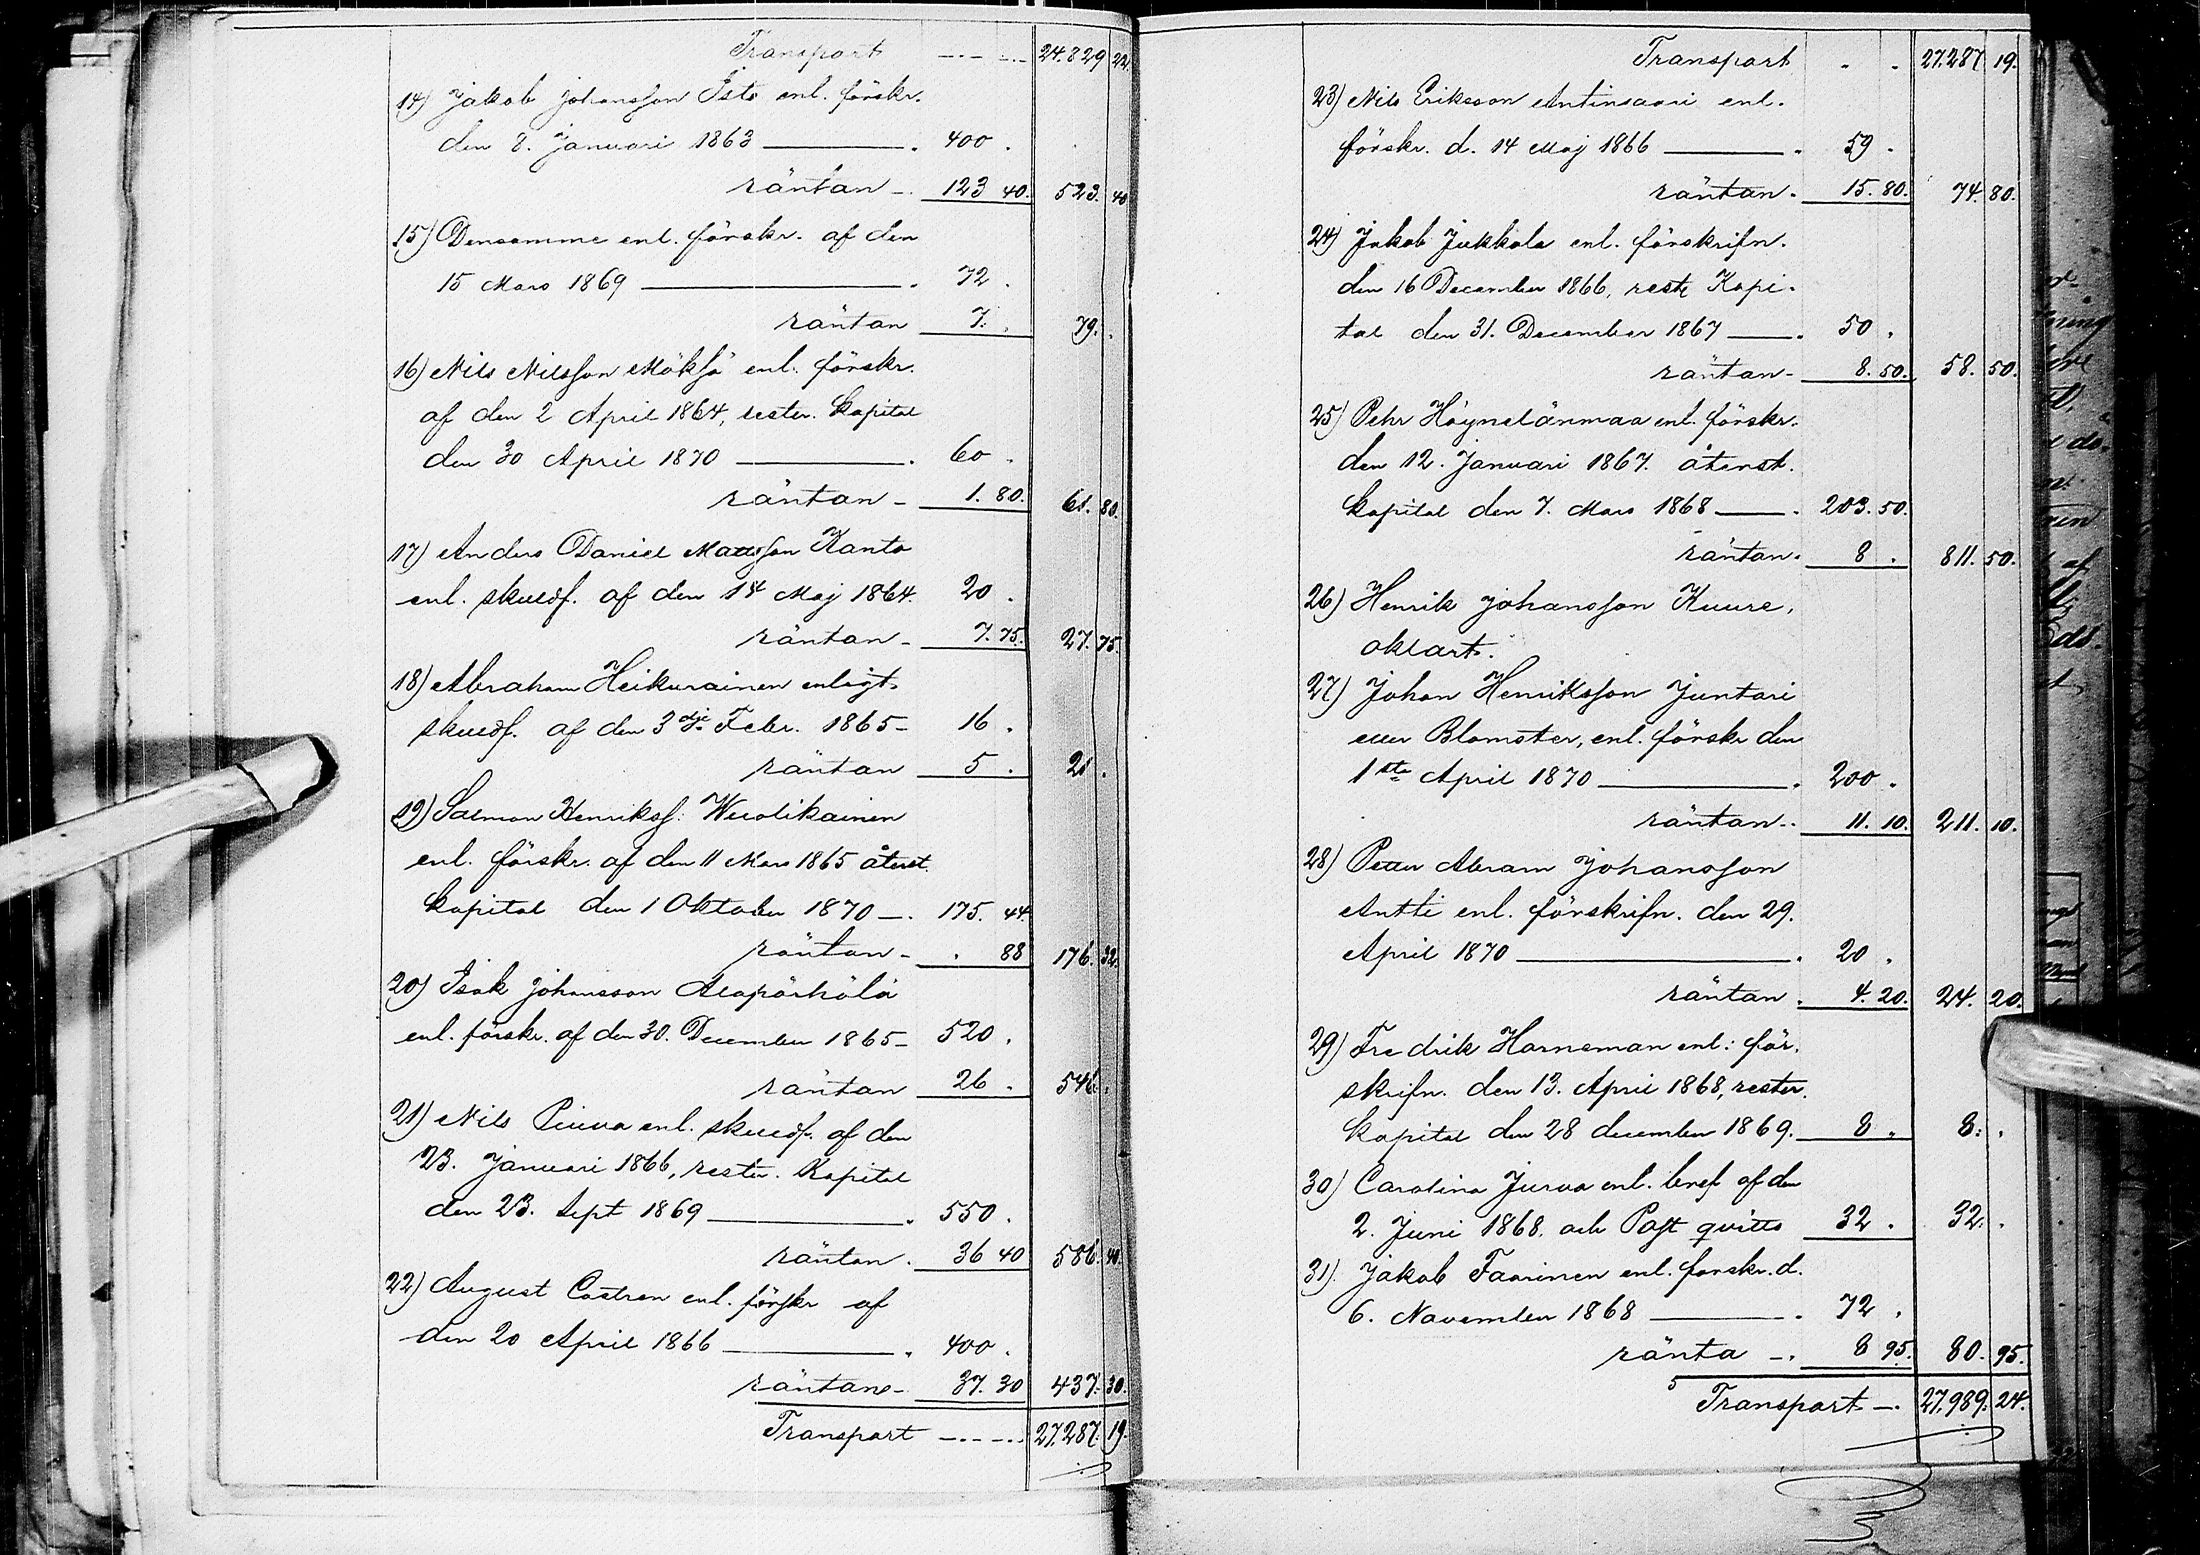 Transport -.-.- 24.829 22.
14) Jakob Johansson Isto enl. förskr.
den 8. Januari 1863 — . 400 .
räntan -. 123 40. 523. 40
15) Densamme enl. förskr. af den
15 Mars 1869 — . 72 .
räntan 7. . 79. .
16) Nils Nilsson Möksö enl. förskr.
af den 2 April 1864, rester. kapital
den 30 April 1870 — . 60 .
räntan - 1. 80. 61. 80.
17) Anders Daniel Mattsson Kanto
enl. skuldf. af den 14 Maj 1864. 20 .
räntan - 7. 75. 27. 75.
18) Abraham Heikurainen enligt
skuldf. af den 3dje Febr. 1865 - 16 .
räntan 5 . 21 .
19) Salmon Henrikss: Wuolikainen
enl. förskr. af den 11 Mars 1865 återst.
kapital den 1 Oktober 1870 -. 175. 44.
räntan - . 88 176. 32.
20) Isak Johansson Alapörhölä
enl. förskr. af den 30. December 1865 - 520 .
räntan 26 . 546. .
21) Nils Piuva enl. skuldf. af den
23. Januari 1866, rester. Kapital
den 23. Sept 1869 — . 550 .
räntan . 36 40 586. 40.
22) August Castren enl. förskr af
den 20 April 1866 — . 400 .
räntan - 37. 30 437. 30.
Transport -.-.- 27.287. 19.
Transport . . 27.287 19.
23) Nils Eriksson Antinsaari enl.
förskr. d. 14 Maj 1866 — . 59 .
räntan . 15. 80. 74. 80.
24) Jakob Jukkola enl. förskrifn.
den 16 December 1866, rest. Kapi-
tal den 31. December 1867 — . 50 .
räntan - 8. 50. 58. 50.
25) Pehr Höynelänmaa enl. förskr.
den 12. Januari 1867. återst.
kapital den 7. Mars 1868 — . 203. 50.
räntan . 8 . 211. 50.
26) Henrik Johansson Kuure,
oklart.
27) Johan Henriksson Juntari
eller Blomster, enl. förskr den
1sta April 1870 — . 200 .
räntan -. 11. 10. 211. 10.
28) Petter Abram Johansson
Antti enl. förskrifn. den 29.
April 1870 — . 20 .
räntan . 4. 20. 24. 20.
29) Fredrik Harneman enl: för-
skrifn. den 13. April 1868, rester.
kapital den 28 december 1869. 8 . 8. .
30) Carolina Jurva enl. bref af den
2. Juni 1868. och Post qvitto 32 . 32. .
31). Jakob Faarinen enl. förskr. d.
6. November 1868 — . 72 .
ränta -. 8 95. 80. 95.
Transport -. 27,989. 24.